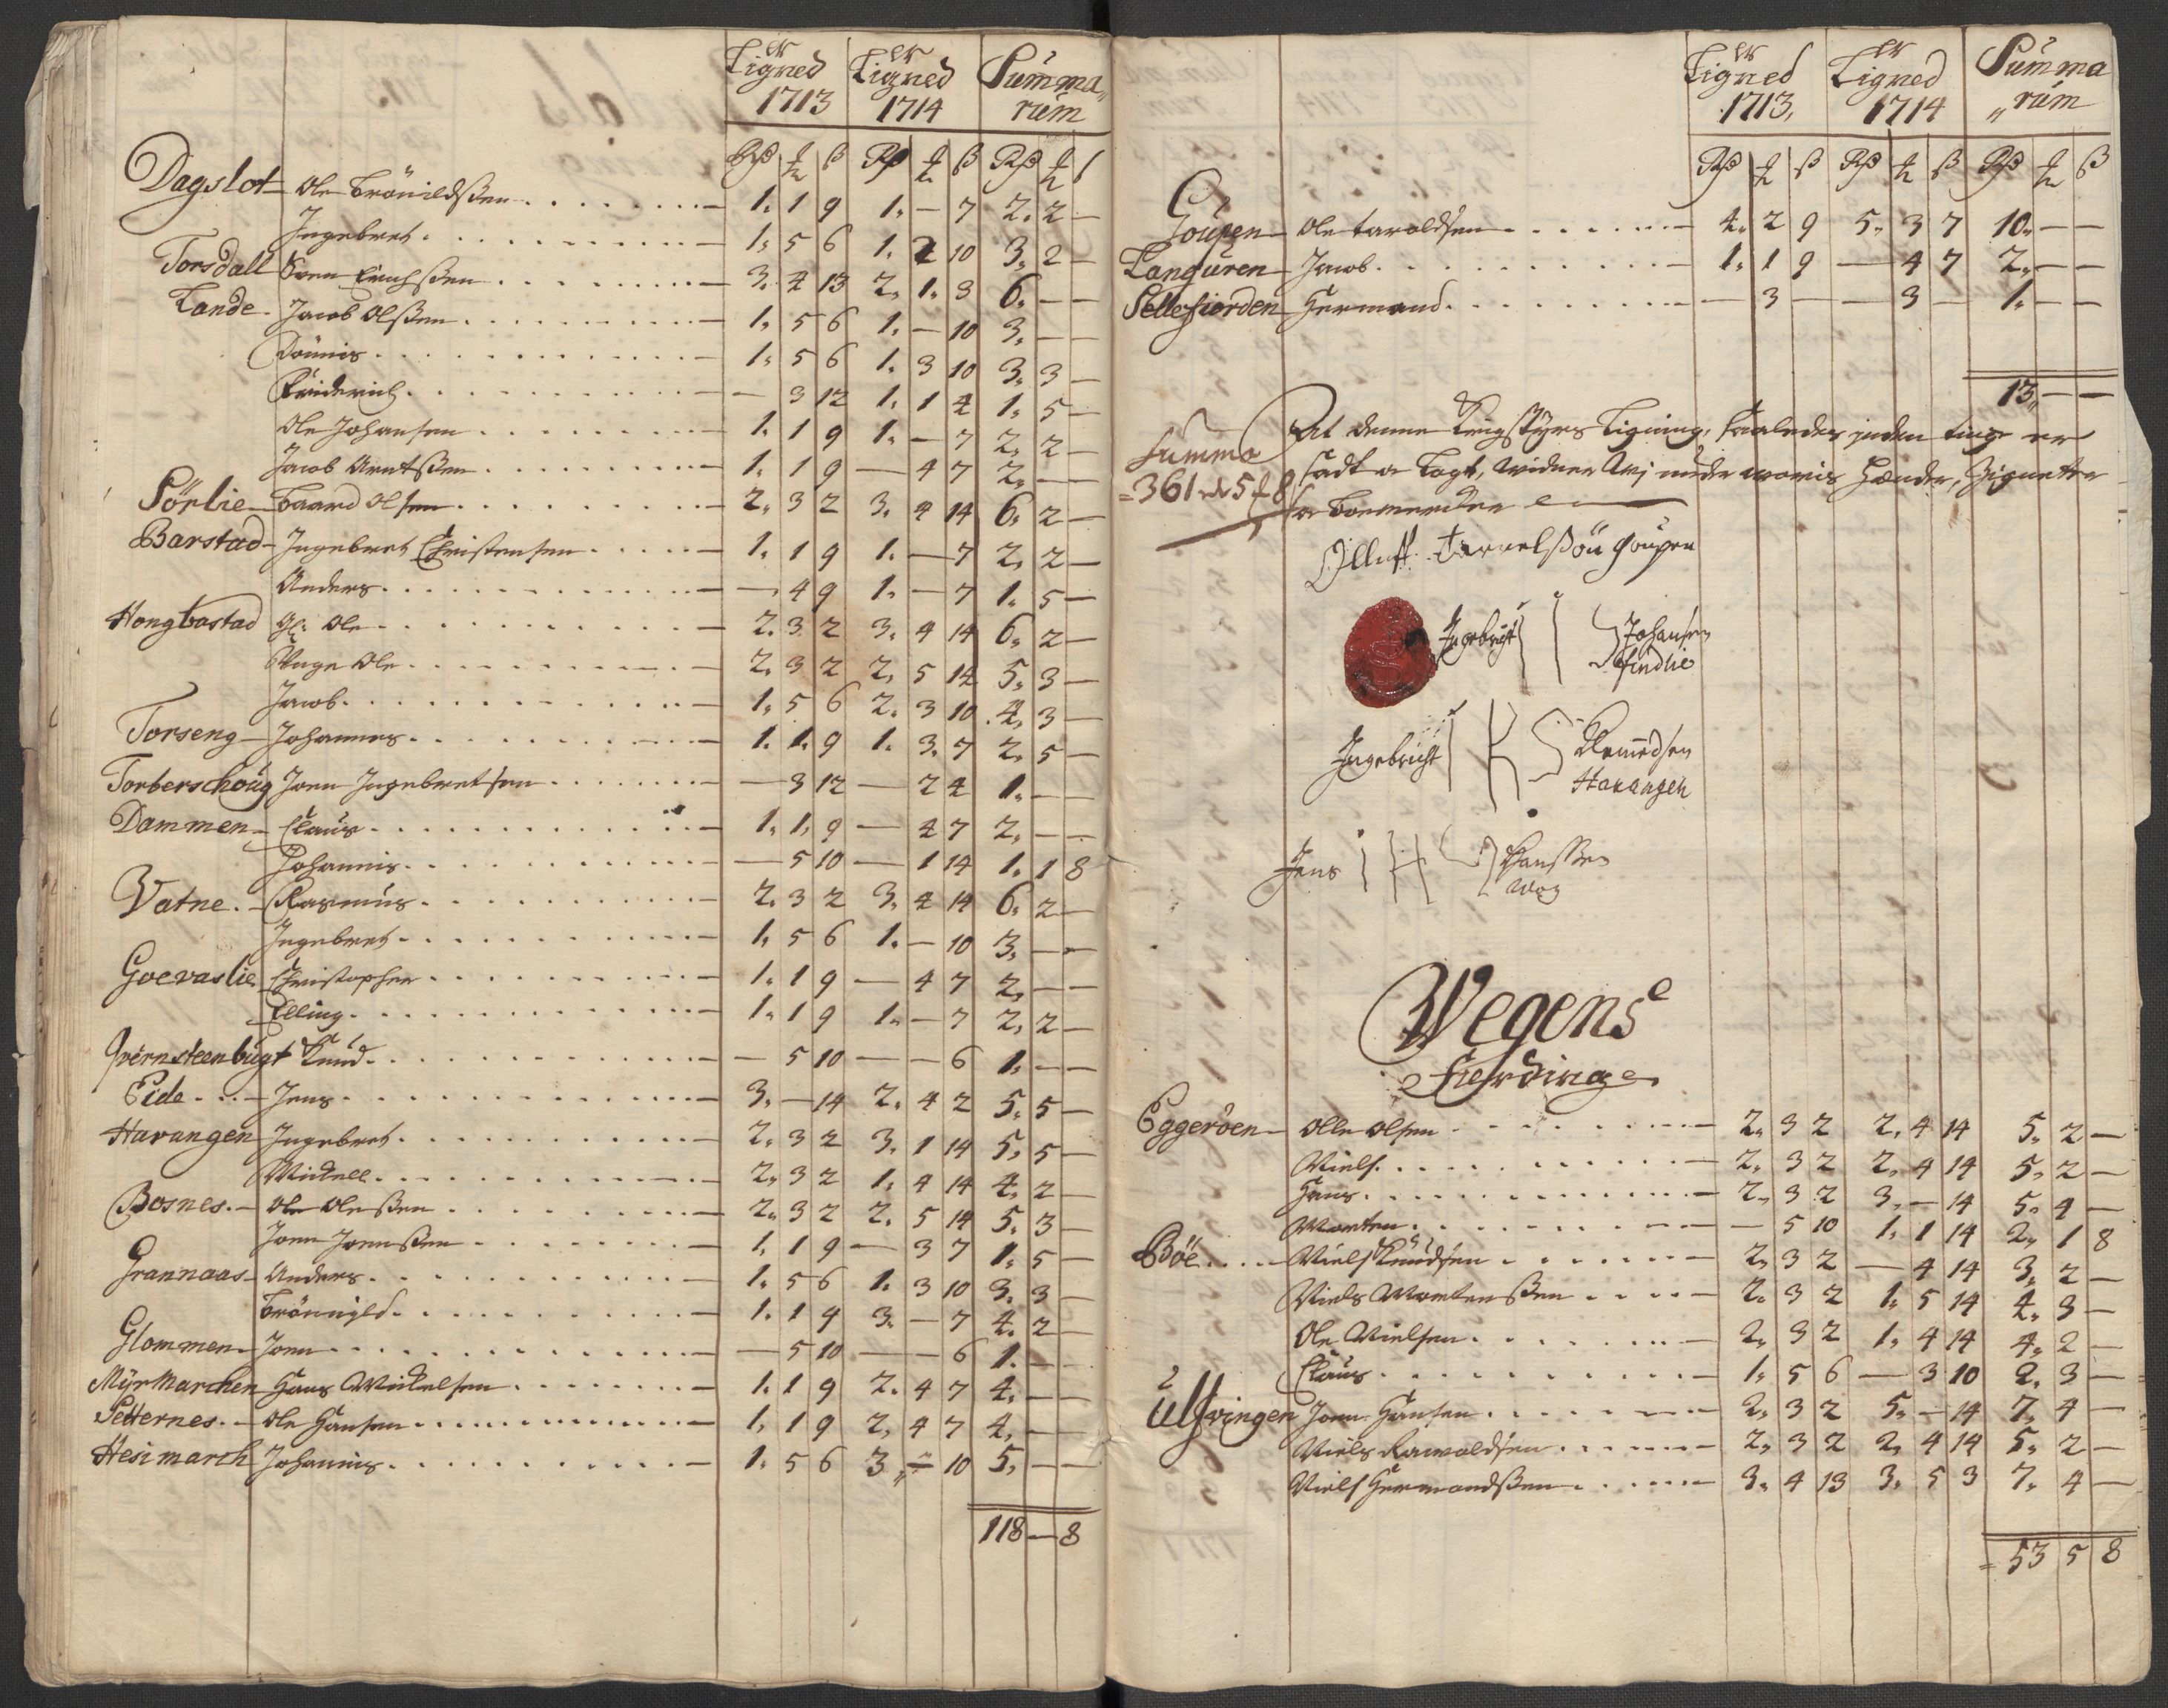 Ligned Ligned Summa„
1713 1714 rum
Rß ₰ ß Rß ₰ ß Rß ₰ ß
Dagslot Ole Brönildßen 1. 1 9 1. — 7 2. 2 —
Ingebret 1. 5 6 1. 2 10 3. 2 —
Torsdall Sven Erichßen 3. 4 13 2. 1. 3 6. — —
Lande Jacob Olßen 1. 5 6 1. — 10 3. — —
Dönnis 1. 5 6 1. 3 10 3. 3 —
Friderich — 3 12 1. 1 4 1. 5 —
Ole Johansen 1. 1 9 1. — 7 2. 2 —
Jacob Arntßen 1. 1 9 — 4 7 2. — —
Sörlie Baard Olsen 2. 3 2 3. 4 14 6. 2 —
Barstad Ingebret Christensen 1. 1 9 1. — 7 2. 2 —
Anders — 4 9 1. — 7 1. 5 —
Hongbastad Gl: Ole 2. 3 2 3. 4 14 6. 2 —
Unge Ole 2. 3 2 2. 5 14 5. 3 —
Jacob 1. 5 6 2. 3 10 4. 3 —
Torseng Johannes 1. 1. 9 1. 3. 7 2. 5 —
Torberschoug Joen Ingebretsen — 3 12 — 2 4 1. — —
Dammen Claus 1. 1. 9 — 4 7 2. — —
Johannis — 5 10 — 1 14 1. 1 8
Vatne Rasmus 2. 3 2 3. 4 14 6. 2 —
Ingebret 1. 5 6 1. — 10 3. — —
Goevaslie Christopher 1. 1 9 — 4 7 2. — —
Elling 1. 1 9 1. — 7 2. 2 —
Qvernsteenbugt Knud — 5 10 — — 6 1. — —
Eide Jens 3. — 14 2. 4 2 5. 5 —
Havangen Ingebret 2. 3 2 3. 1 14 5. 5 —
Mickell 2. 3 2 1. 4 14 4. 2 —
Bosnes Ole Oleßen 2. 3 2 2. 5 14 5. 3 —
Joen Joenßen 1. 1 9 — 3 7 1. 5 —
Grannaas Anders 1. 5 6 1. 3 10 3. 3 —
Brönnild 1. 1 9 3. — 7 4. 2 —
Glommen Joen — 5 10 — — 6 1. — —
Myrmarchen Hans Mickelsen 1. 1 9 2. 4 7 4. — —
Setternes Ole Hansen 1. 1 9 2. 4 7 4. — —
Hesimarch Johannis 1. 5 6 3„ — 10 5. — —
118 — 8
Ligned Ligned Summa
1713. 1714 „rum
Rß ₰ ß Rß ₰ ß Rß ₰ ß
Goupen Ole taraldsen 4. 2 9 5. 3 7 10. — —
Langüren Jacob 1. 1 9 — 4 7 2. — —
Sellefiorden Hermand — 3 — — 3 — 1. — —
13„ — —
At denne Krigstyrs Ligning, saaledes inden tinge er
Summa
sadt oc lagt, widner Wj under woris Hænder, Zignetter
= 361 rd 5 ₰ 8 ß
oc Boemercker
Olluff tarrelßön goupen
Ingebricht Johansen
findlie
Ingebricht Clemedsen
Havangen
Jens Hanssen
Wog
Wegens
Fierdinge
Eggeröen Olle Olsen 2. 3 2 2. 4 14 5. 2 —
Niels 2. 3 2 2. 4 14 5. 2 —
Hans 2. 3 2 3. — 14 5. 4 —
Morten — 5 10 1. 1 14 2. 1 8
Böe Niels Knudsen 2. 3 2 — 4 14 3. 2 —
Niels Mortenßen 2. 3 2 1. 5 14 4. 3 —
Ole Nielsen 2. 3 2 1. 4 14 4. 2 —
Claus 1. 5 6 — 3 10 2. 3 —
Ulfvingen Joen Hansen 2. 3 2 5. — 14 7. 4 —
Niels Rawaldsen 2. 3 2 2. 4 14 5. 2 —
Niels Hermandßen 3. 4 13 3. 5 3 7. 4 —
= 53 5 8